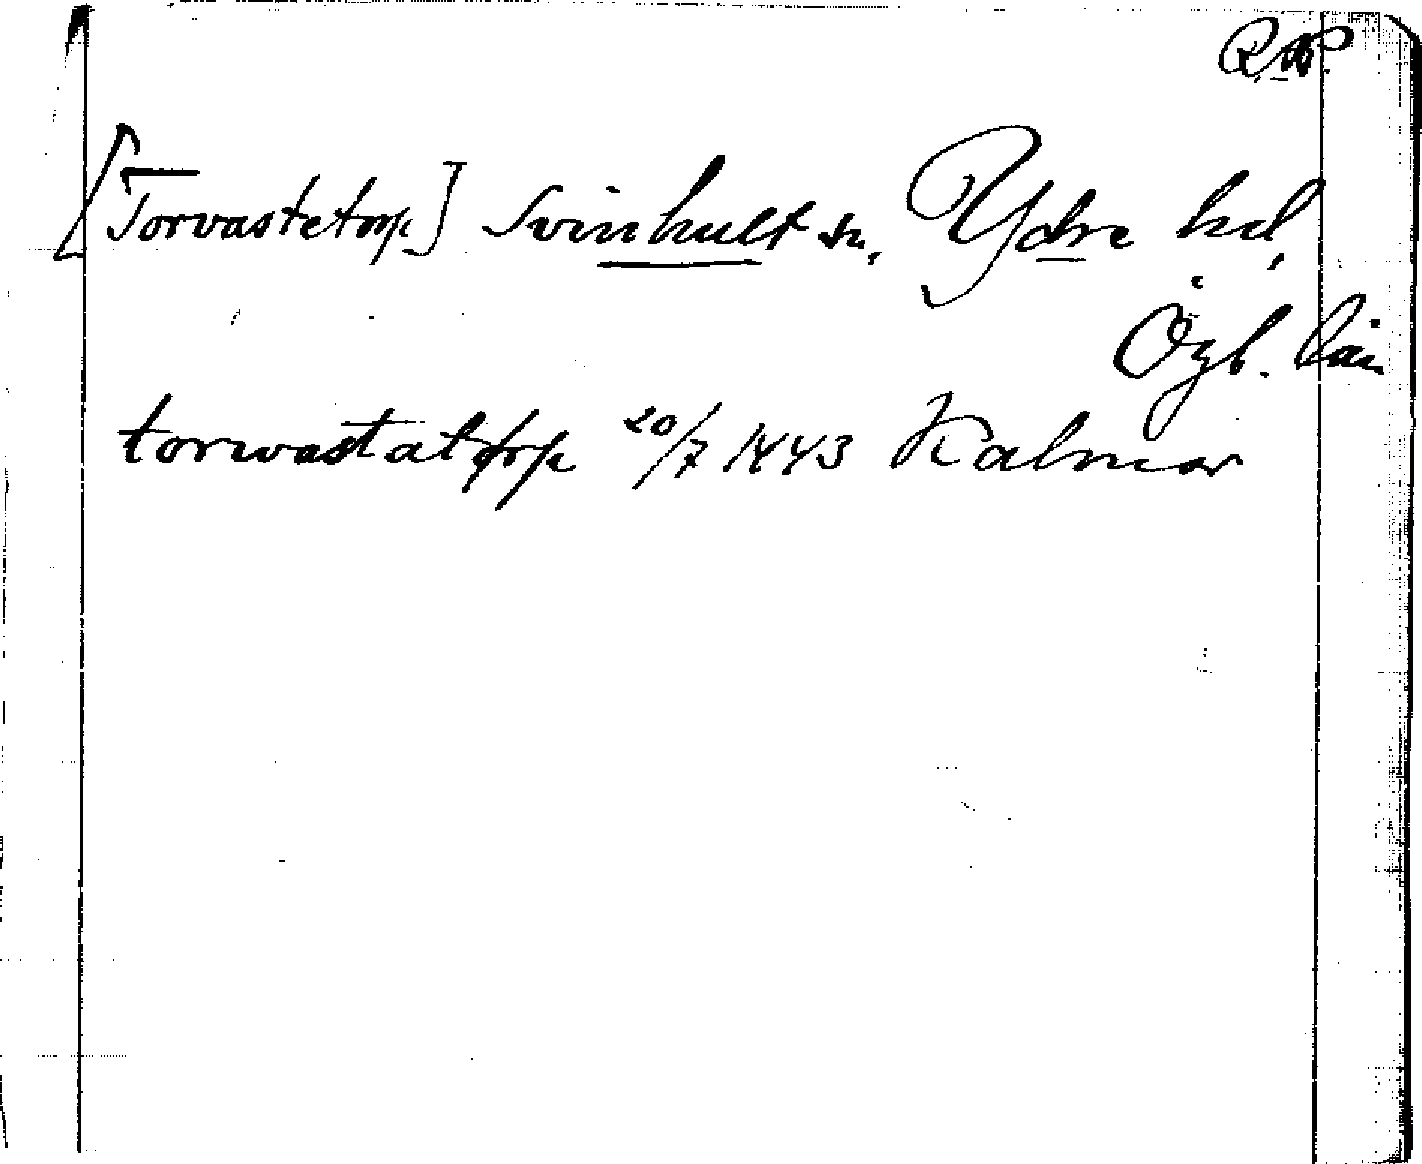 [Torvastetorp] Svinhult sn, Ydre hd,
Ögl. län
torwastatorp 20/7 1443 Kalmar